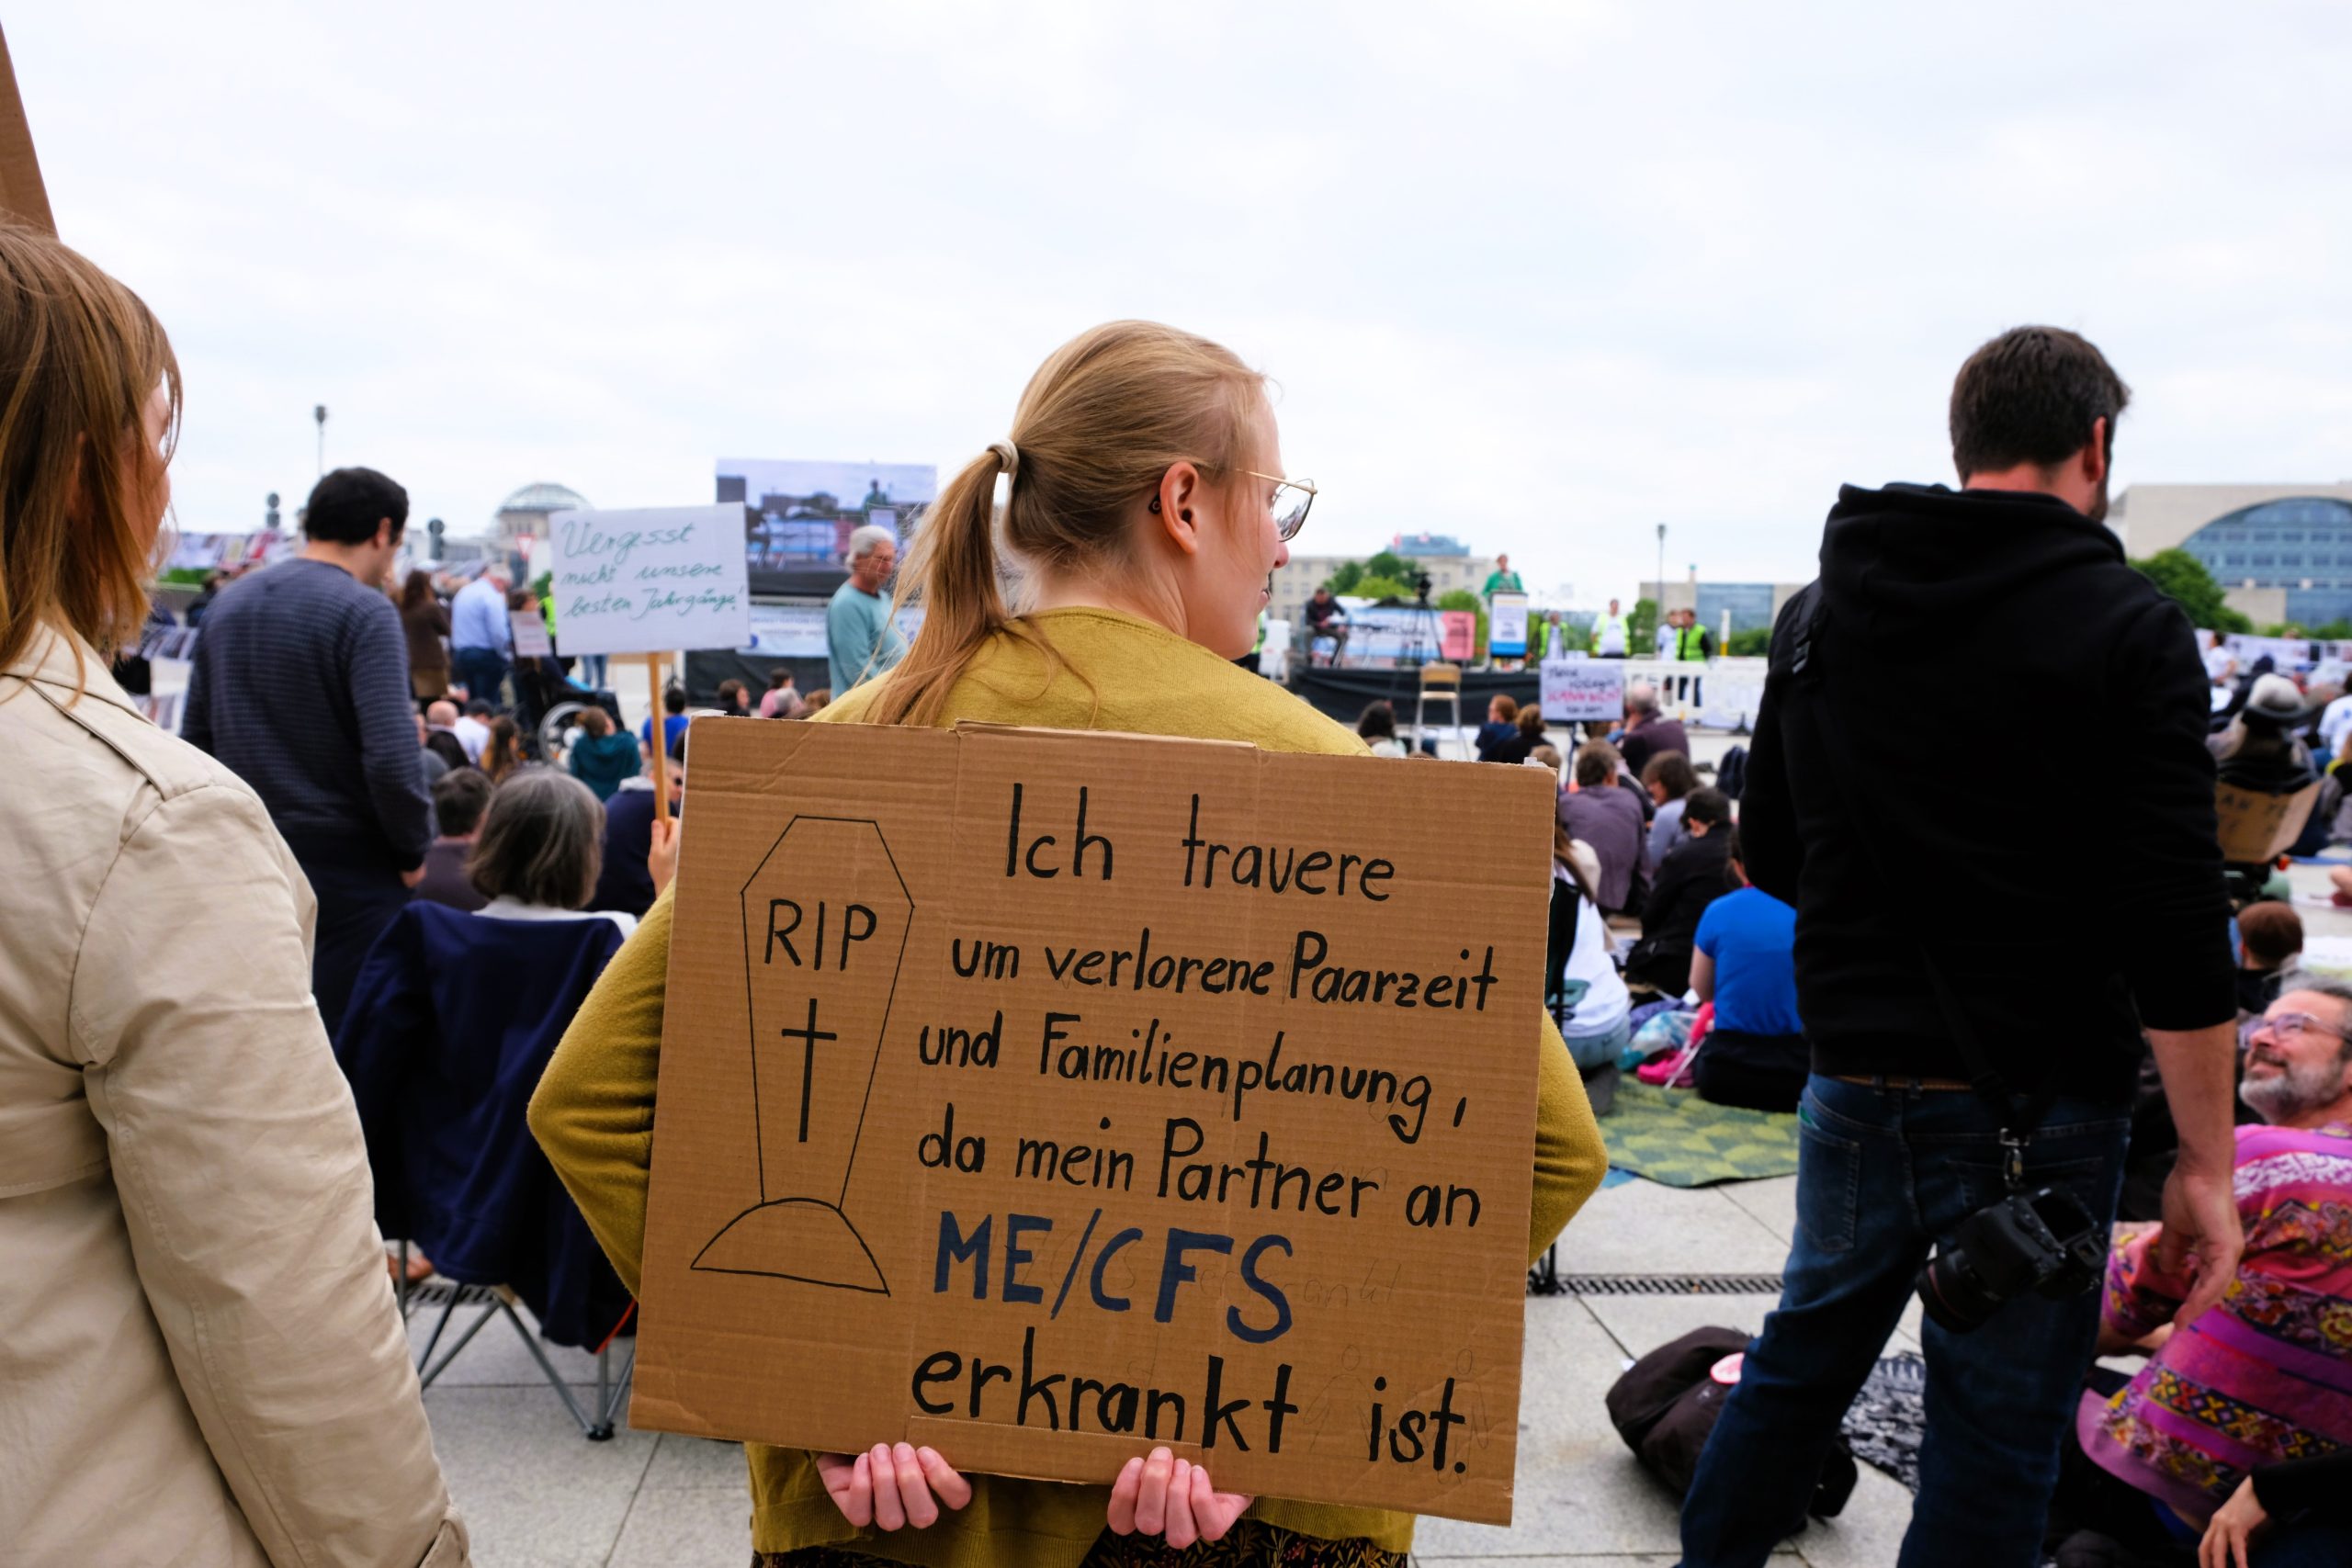 Vergesst
nicht unsere
besten Jahrgänge!
RIP
Ich trauere
um verlorene Paarzeit
und Familienplanung,
da mein Partner an
ME/CFS
erkrankt ist.